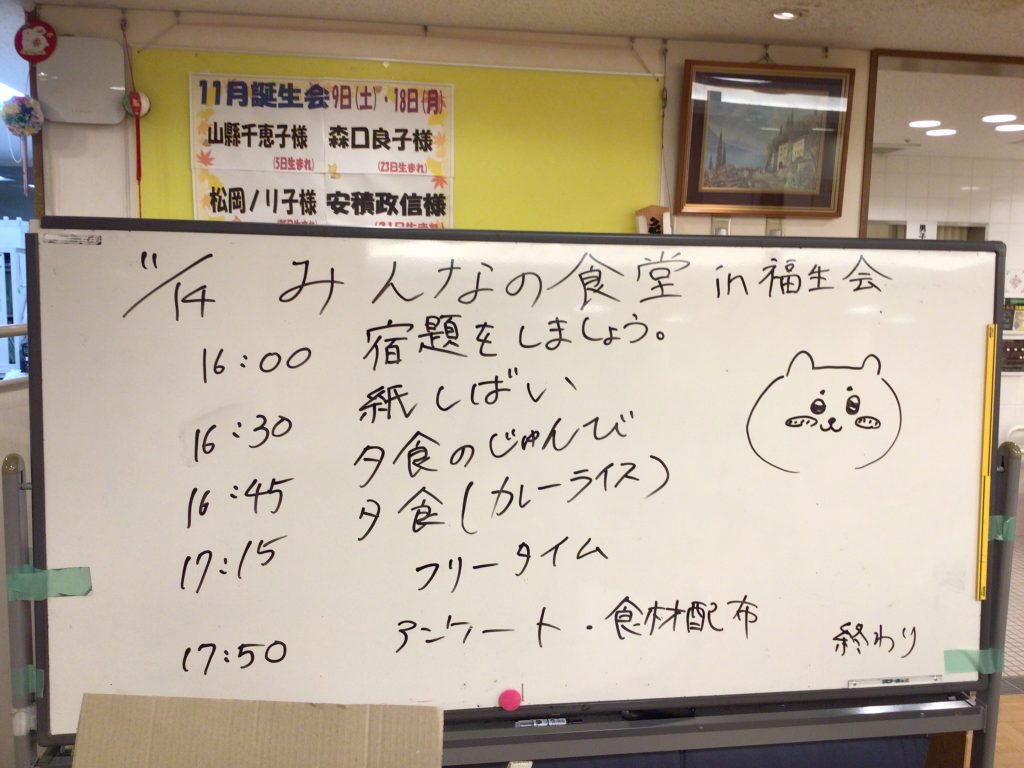 11月誕生会9日(土)・18日(月)
山縣千恵子様 森口良子様
(5日生まれ) (23日生まれ)
松岡ノリ子様 安積政信様
11/14 みんなの食堂 in 福生会
16:00 宿題をしましょう。
16:30 紙しばい
16:45 夕食のじゅんび
17:15 夕食(カレーライス)
フリータイム
17:50 アンケート・食材配布 終わり
男子